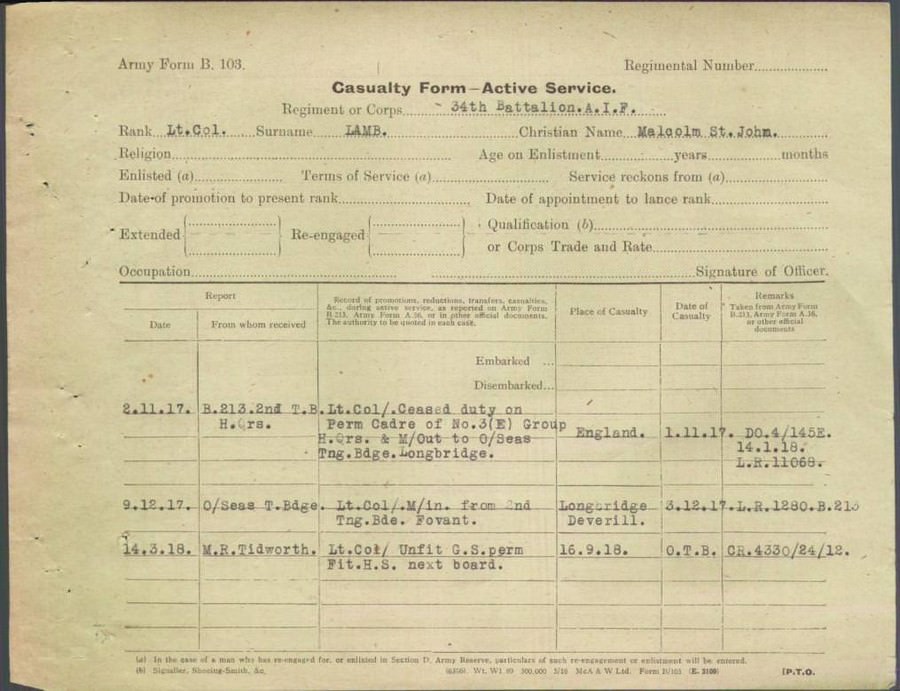 Army Form B. 103.
Regimental Number
Casualty Form—Active Service.
Regiment or Corps 34th Battalion.A.I.F.
Rank Lt.Col. Surname LAMB. Christian Name Malcolm St.John.
Religion Age on Enlistment years months
Enlisted (a) Terms of Service (a) Service reckons from (a)
Date of promotion to present rank Date of appointment to lance rank
Extended Re-engaged Qualification (b)
or Corps Trade and Rate
Occupation Signature of Officer.
Report
Date
From whom received
Record of promotions, reductions, transfers, casualties,
&c., during active service, as reported on Army Form
B.213, Army Form A.36, or in other official documents.
The authority to be quoted in each case.
Place of Casualty
Date of
Casualty
Remarks
Taken from Army Form
B.213, Army Form A.36,
or other official
documents
Embarked ...
Disembarked...
2.11.17. B.213.2nd T.B. Lt.Col/.Ceased duty on
H.Qrs. Perm Cadre of No.3(E) Group
H.Qrs. & M/Out to O/Seas
Tng.Bdge.Longbridge.
England. 1.11.17. DO.4/145E.
14.1.18.
L.R.11068.
9.12.17. O/Seas T.Bdge. Lt.Col/.M/in. from 2nd Longbridge 3.12.17. L.R.1280.B.213
Tng.Bde. Fovant. Deverill.
14.3.18. M.R.Tidworth. Lt.Col/ Unfit G.S.perm 16.9.18. O.T.B. CR.4330/24/12.
Fit.H.S. next board.
(a) In the case of a man who has re-engaged for, or enlisted in Section D, Army Reserve, particulars of such re-engagement or enlistment will be entered.
(b) Signaller, Shoeing-Smith, &c. Wt. W1 300,000 McA & W Ltd. Form B/103 (E. 3109) [P.T.O.